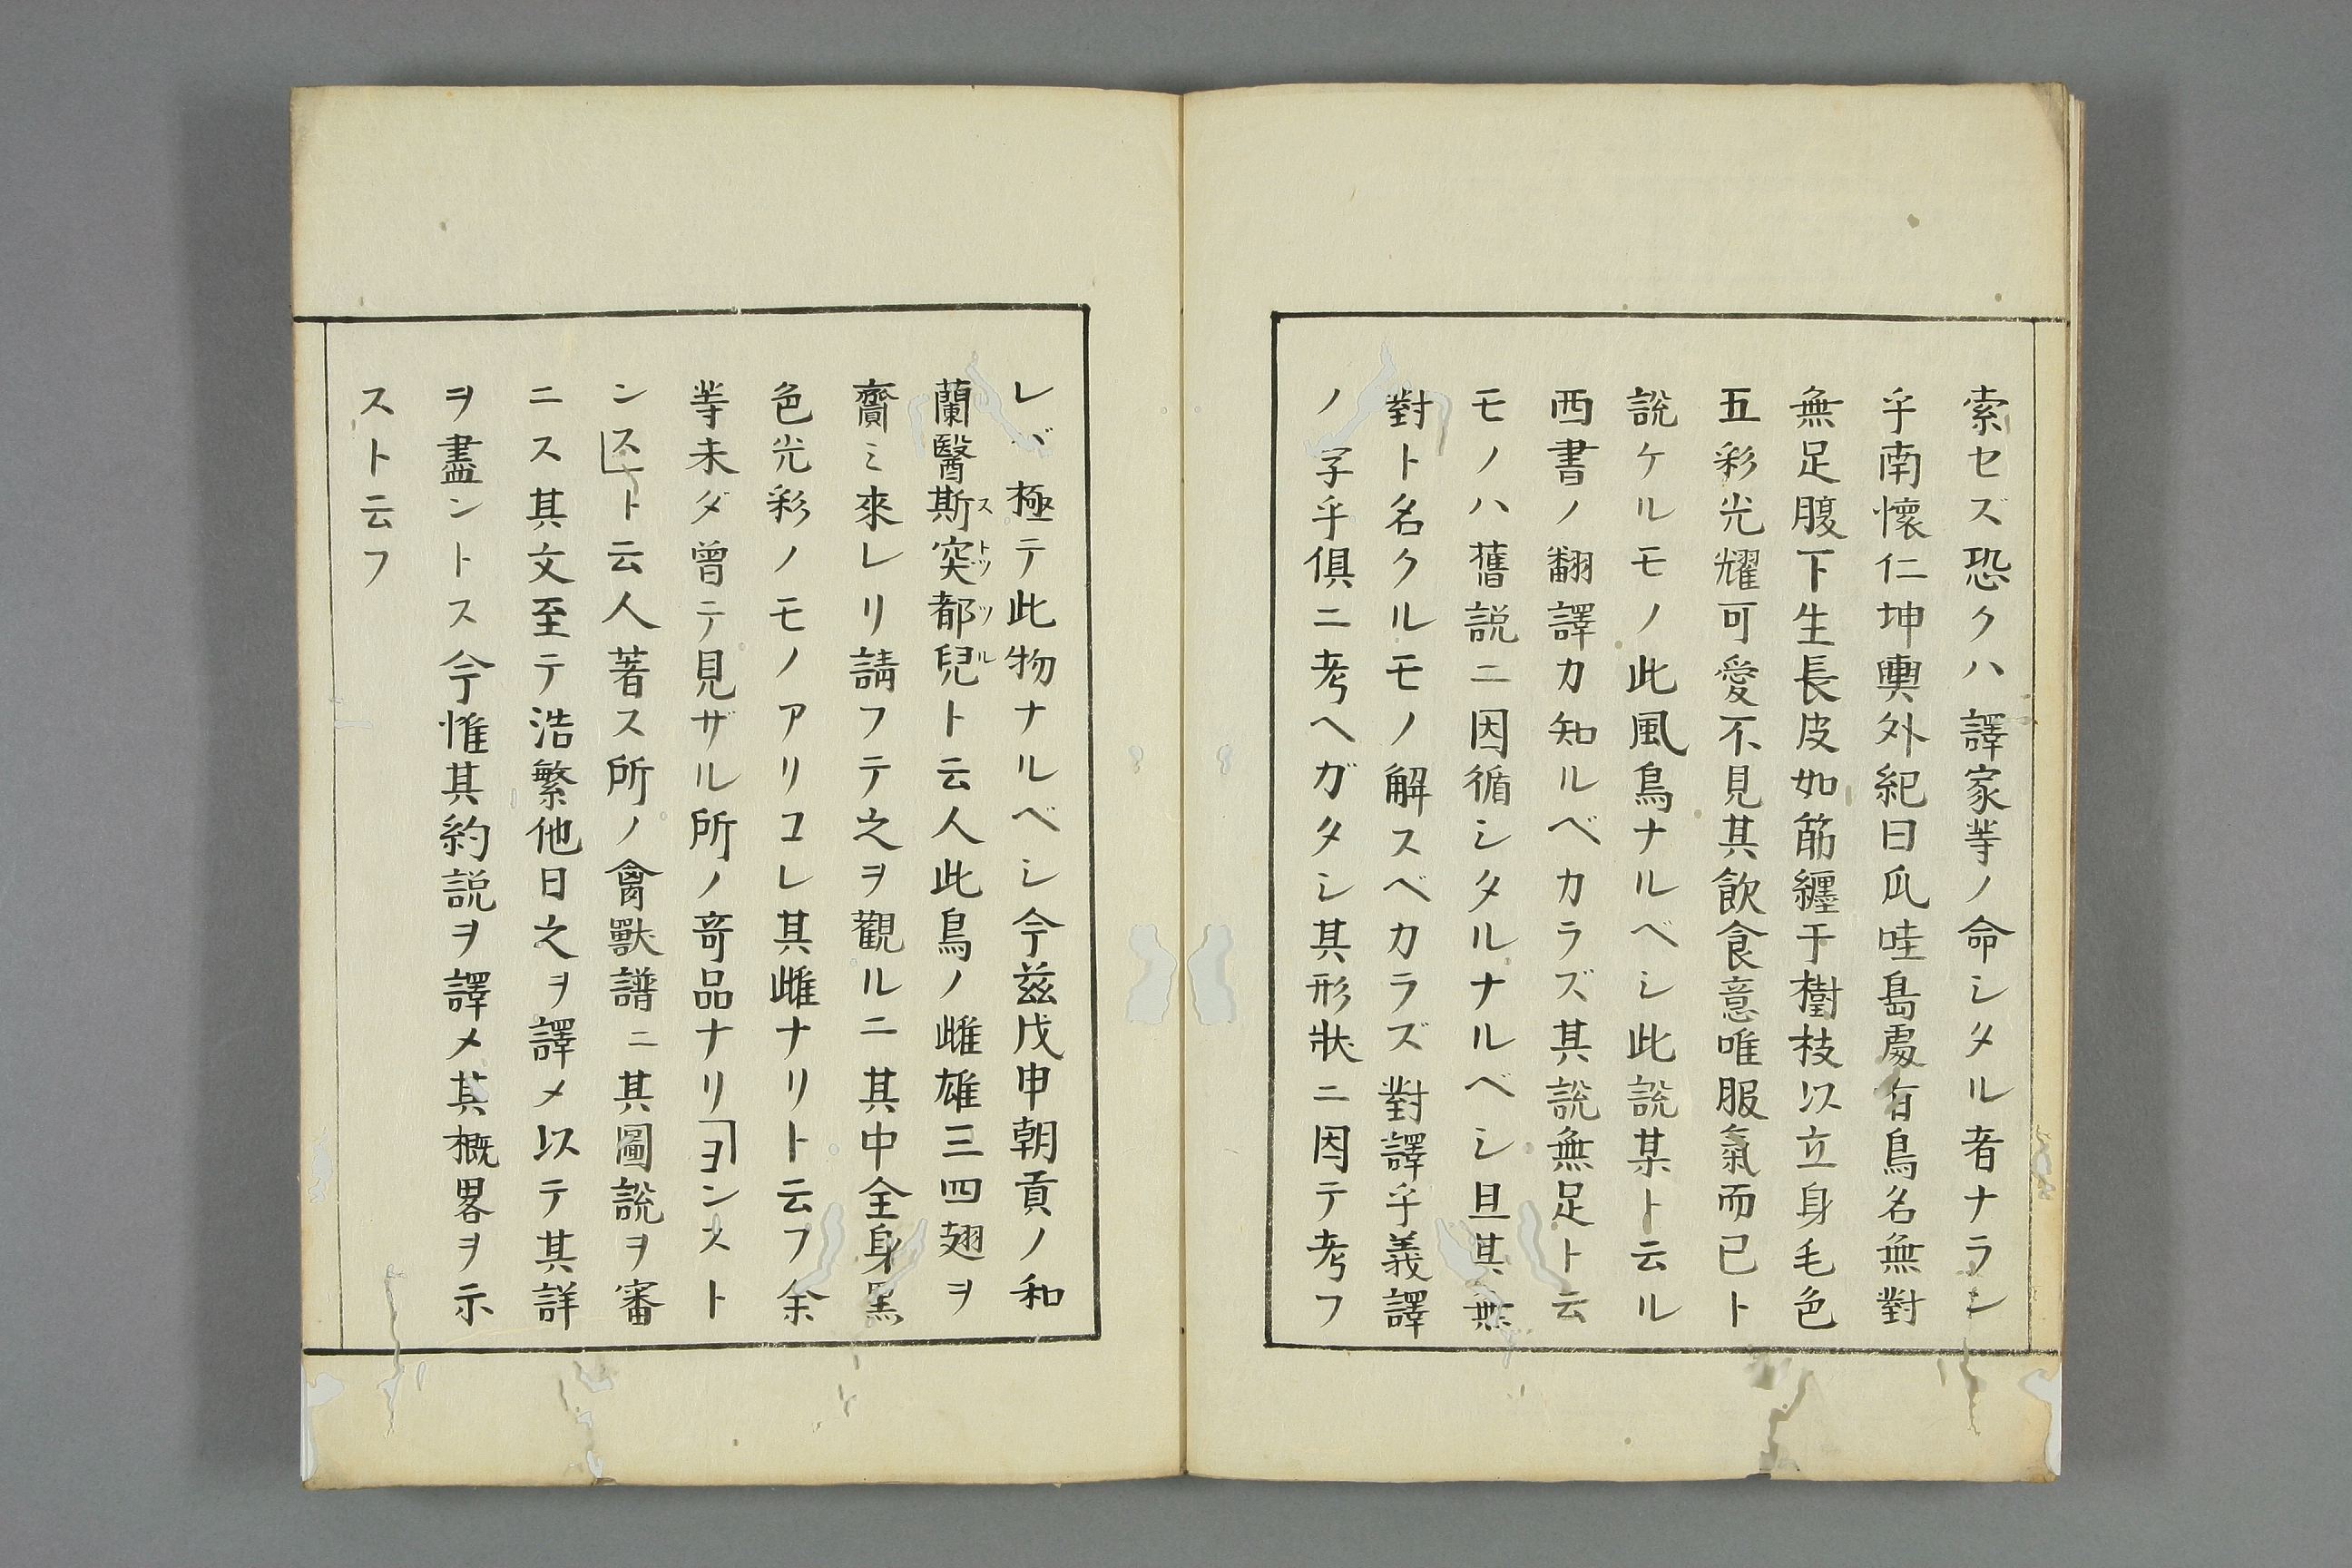 索セズ恐クハ譯家等ノ命シタル者ナラン
乎南懷仁坤輿外紀曰瓜哇島處有鳥名無對
無足腹下生長皮如筋纏于樹枝以立身毛色
五彩光耀可愛不見其飲食意唯服氣而已ト
說ケルモノ此風鳥ナルベシ此說某ト云ル
西書ノ翻譯カ知ルベカラズ其說無足ト云
モノハ舊説ニ因循シタルナルベシ且其無
對ト名クルモノ解スベカラズ對譯乎義譯
ノ字乎俱ニ考ヘガタシ其形狀ニ因テ考フ
レバ極テ此物ナルベシ今茲戊申朝貢ノ和
蘭醫斯突都兒ト云人此鳥ノ雌雄三四翅ヲ
ストツツル
齎ミ來レリ請フテ之ヲ觀ルニ其中全身黑
色光彩ノモノアリコレ其雌ナリト云フ余
等未ダ曾テ見ザル所ノ竒品ナリ「ヨンスト
ンス」ト云人著ス所ノ禽獸譜ニ其圖說ヲ審
ニス其文至テ浩繁他日之ヲ譯メ以テ其詳
ヲ盡ントス今惟其約説ヲ譯メ其概畧ヲ示
スト云フ